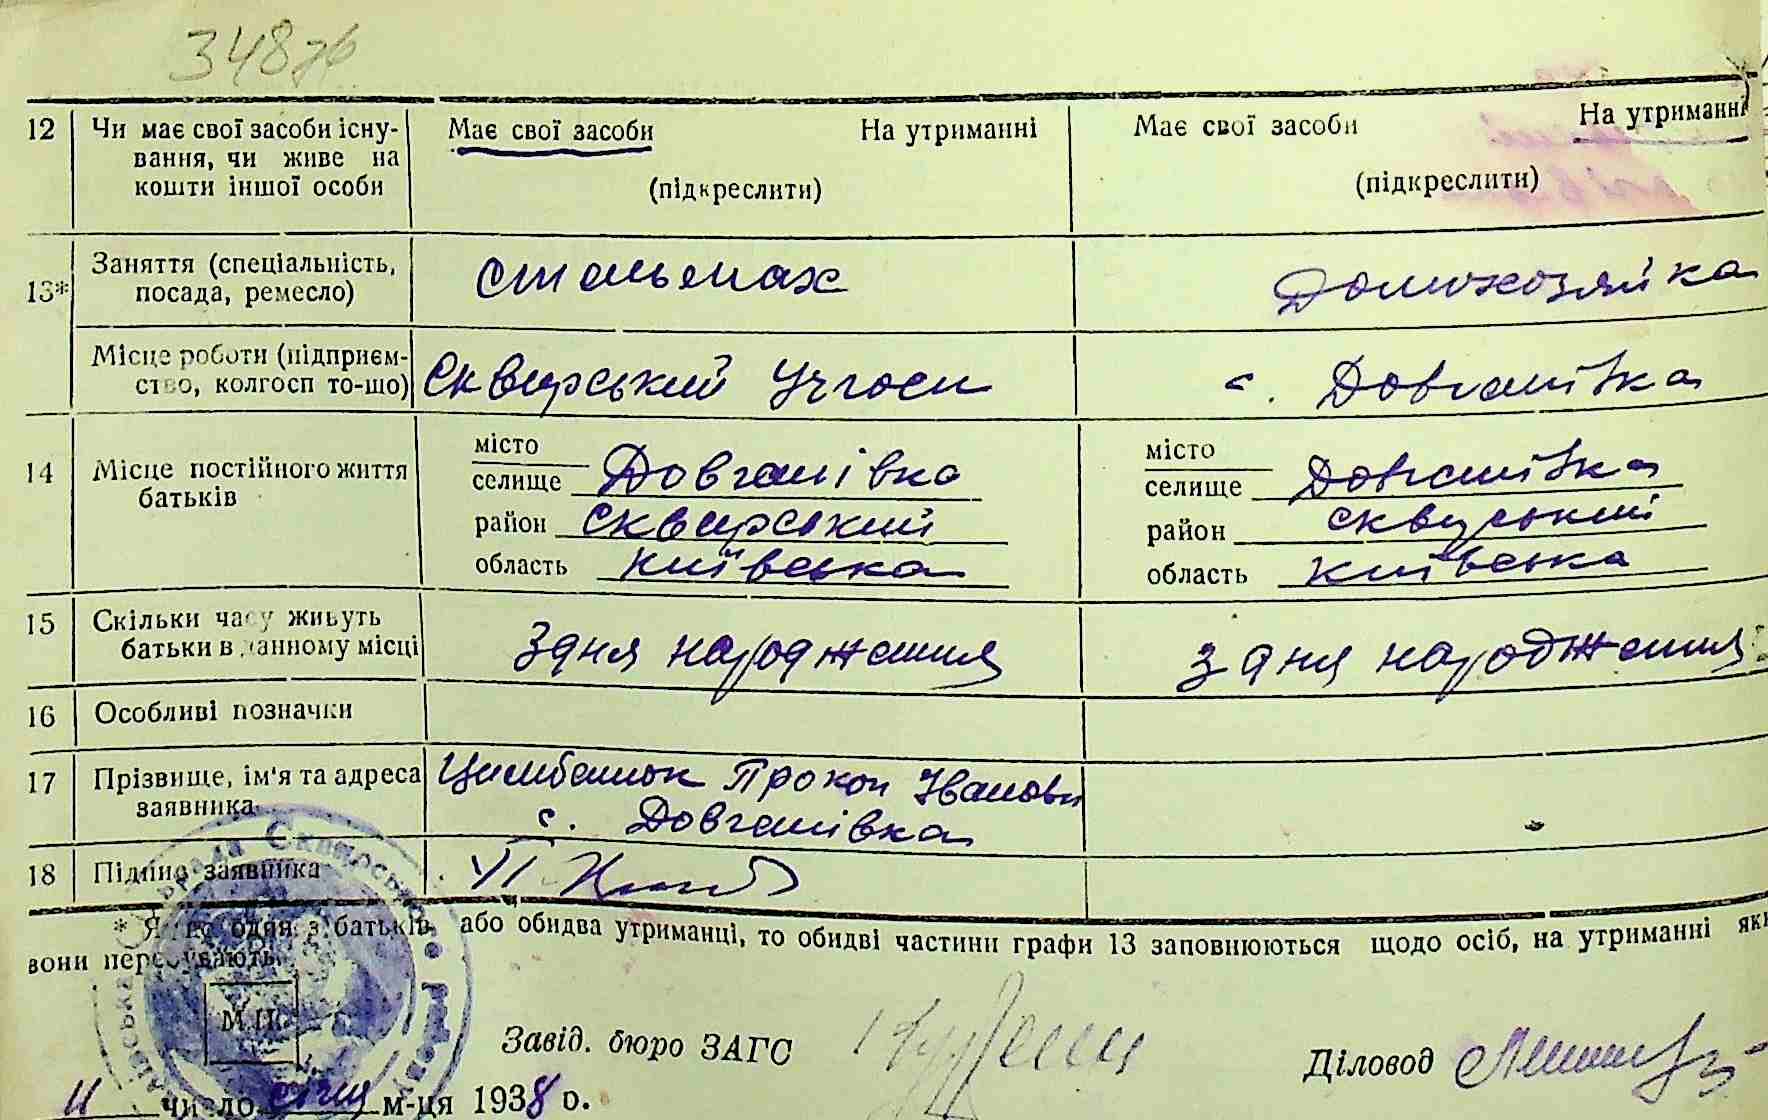 348зв
12 Чи має свої засоби існу- Має свої засоби На утриманні Має свої засоби На утриманні
вання, чи живе на
кошти іншої особи (підкреслити) (підкреслити)
13* Заняття (спеціальність, стельмах Домохозяйка
посада, ремесло)
Місце роботи (підприєм-
ство, колгосп то-що) Сквирський Учгосп с. Довганівка
14 Місце постійного життя місто місто
батьків селище Довганівка селище Довганівка
район Сквирський район сквирський
область Київська область Київська
15 Скільки часу живуть
батьки в данному місці З дня народження З дня народження
16 Особливі позначки
17 Прізвище, ім'я та адреса Цимбалюк Прокоп Іванови
заявника с. Довганівка
18 Підпис заявника П.
* Якщо один з батьків або обидва утриманці, то обидві частини графи 13 заповнюються щодо осіб, на утриманні як
вони перебувають.
М.П.
Завід. бюро ЗАГС Діловод
11 число січня м-ця 1938 р.